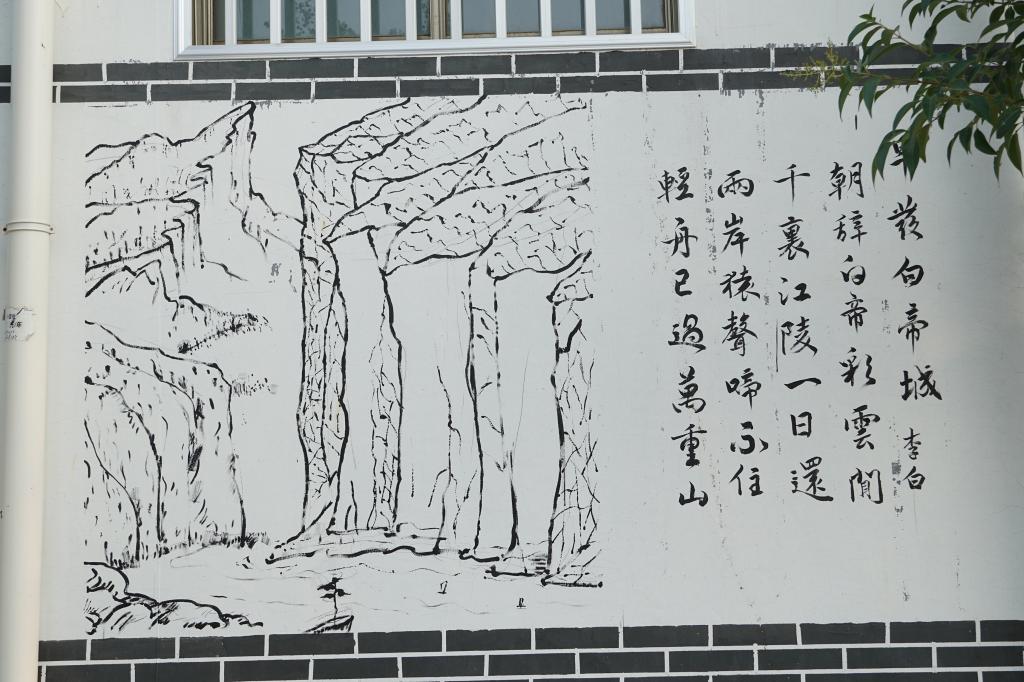 早發白帝城 李白
朝辞白帝彩雲間
千裏江陵一日還
兩岸猿聲啼不住
輕舟已過萬重山